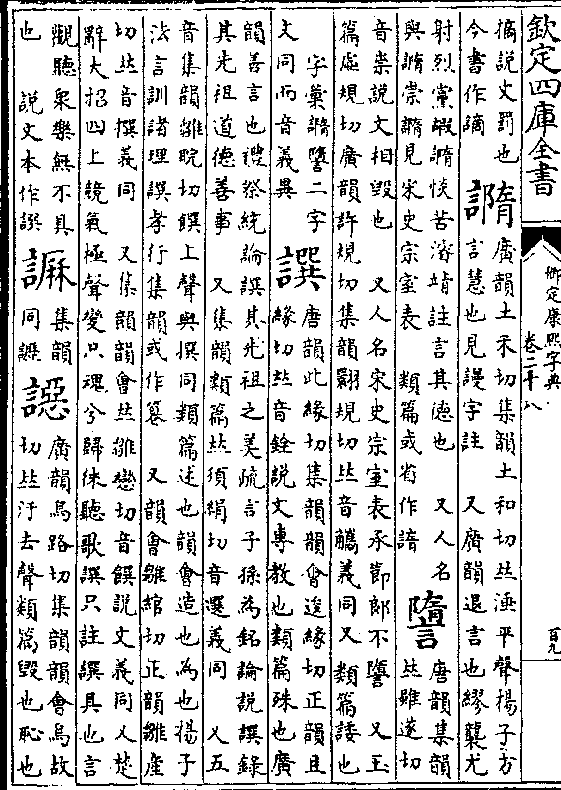 欽定四庫全書
御定康熙字典
卷二十八
百九
摘說文罰也
今書作謫
䜏
廣韻土禾切集韻土和切𠀤涶平聲揚子方
言慧也見謾字註 又廣韻退言也繆襲尤
射烈黨蝦䜏悛苦濬靖註言其德也 又人名
與䜏崇䜏見宋史宗室表 類篇或省作諳
𧬨
唐韻集韻
𠀤雖遂切
音祟說文相毁也 又人名宋史宗室表承節郎不𧬨 又玉
篇虛規切廣韻許規切集韻翾規切𠀤音觿義同又類篇諉也
字彙䜏𧬨二字
文同而音義異
譔
唐韻此緣切集韻韻會逡緣切正韻且
緣切𠀤音銓說文專敎也類篇殊也廣
韻善言也禮祭統論譔其先祖之美疏言子孫為銘論說譔錄
其先祖道德善事 又集韻類篇𠀤須絹切音選義同 又五
音集韻雛晥切饌上聲與撰同類篇述也韻會造也為也揚子
法言訓諸理譔孝行集韻或作篹 又韻會雛綰切正韻雛產
切𠀤音撰義同 又集韻韻會𠀤雛戀切音饌說文義同又楚
辭大招四上競氣極聲變只魂兮歸徠聽歌譔只註譔具也言
觀聽衆樂無不具
也 說文本作𧫣
𧬊
集韻
同謑
䜑
廣韻烏路切集韻韻會烏故
切𠀤汙去聲類篇毁也恥也